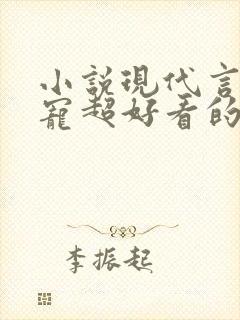 小説現代言
寵超好看的
李振起